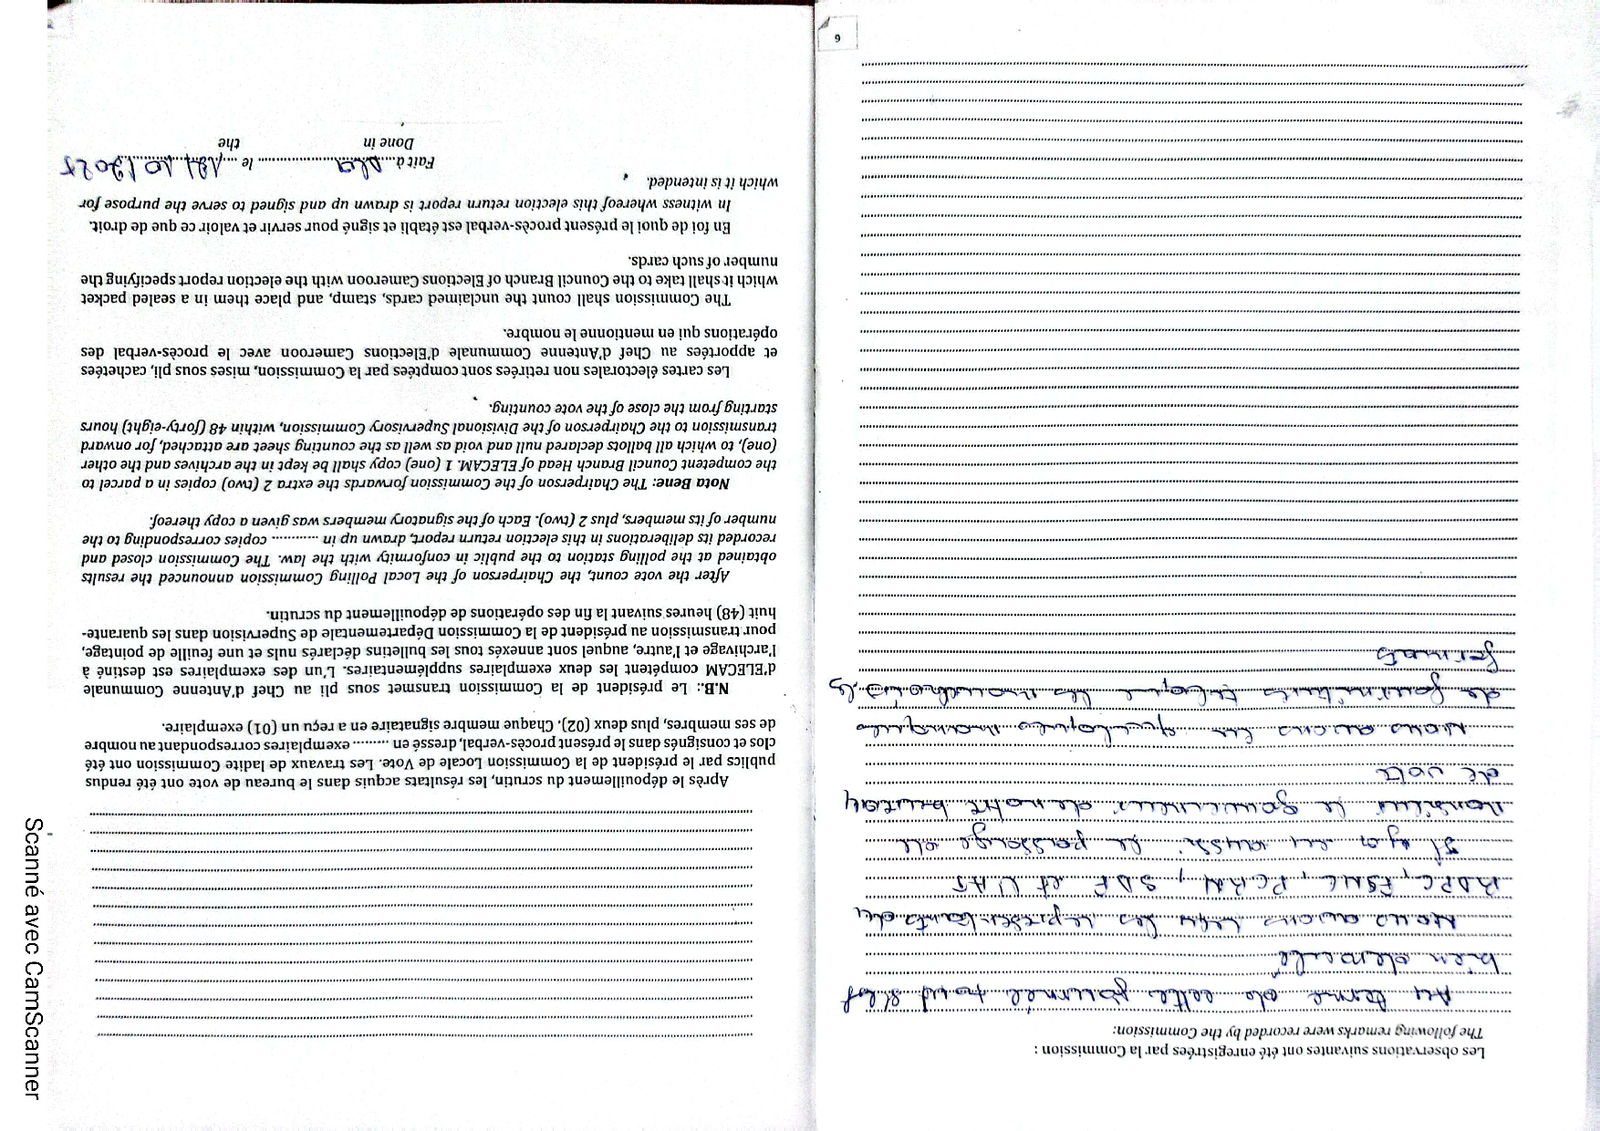 Les observations suivantes ont été enregistrées par la Commission :
The following remarks were recorded by the Commission:
Au terme de cette journée tout s'est
bien deroulé
Nous avons reçu les représentants du
RDPC, FSNC, PCRN, SDF et UMS
Il y a eu aussi le passage de
le gouverneur de notre bureau
de vote
Nous avons eu quelques manques
de fournitures les
formats
6
Après le dépouillement du scrutin, les résultats acquis dans le bureau de vote ont été rendus
publics par le président de la Commission Locale de Vote. Les travaux de ladite Commission ont été
clos et consignés dans le présent procès-verbal, dressé en ......... exemplaires correspondant au nombre
de ses membres, plus deux (02). Chaque membre signataire en a reçu un (01) exemplaire.
N.B.: Le président de la Commission transmet sous pli au Chef d'Antenne Communale
d'ELECAM compétent les deux exemplaires supplémentaires. L'un des exemplaires est destiné à
l'archivage et l'autre, auquel sont annexés tous les bulletins déclarés nuls et une feuille de pointage,
pour transmission au président de la Commission Départementale de Supervision dans les quarante-
huit (48) heures suivant la fin des opérations de dépouillement du scrutin.
After the vote count, the Chairperson of the Local Polling Commission announced the results
obtained at the polling station to the public in conformity with the law. The Commission closed and
recorded its deliberations in this election return report, drawn up in ............ copies corresponding to the
number of its members, plus 2 (two). Each of the signatory members was given a copy thereof.
Nota Bene: The Chairperson of the Commission forwards the extra 2 (two) copies in a parcel to
the competent Council Branch Head of ELECAM. 1 (one) copy shall be kept in the archives and the other
(one), to which all ballots declared null and void as well as the counting sheet are attached, for onward
transmission to the Chairperson of the Divisional Supervisory Commission, within 48 (forty-eight) hours
starting from the close of the vote counting.
Les cartes électorales non retirées sont comptées par la Commission, mises sous pli, cachetées
et apportées au Chef d'Antenne Communale d'Elections Cameroon avec le procès-verbal des
opérations qui en mentionne le nombre.
The Commission shall count the unclaimed cards, stamp, and place them in a sealed packet
which it shall take to the Council Branch of Elections Cameroon with the election report specifying the
number of such cards.
En foi de quoi le présent procès-verbal est établi et signé pour servir et valoir ce que de droit.
In witness whereof this election return report is drawn up and signed to serve the purpose for
which it is intended.
Fait à le 12/10/2025
Done in the
Scanné avec CamScanner